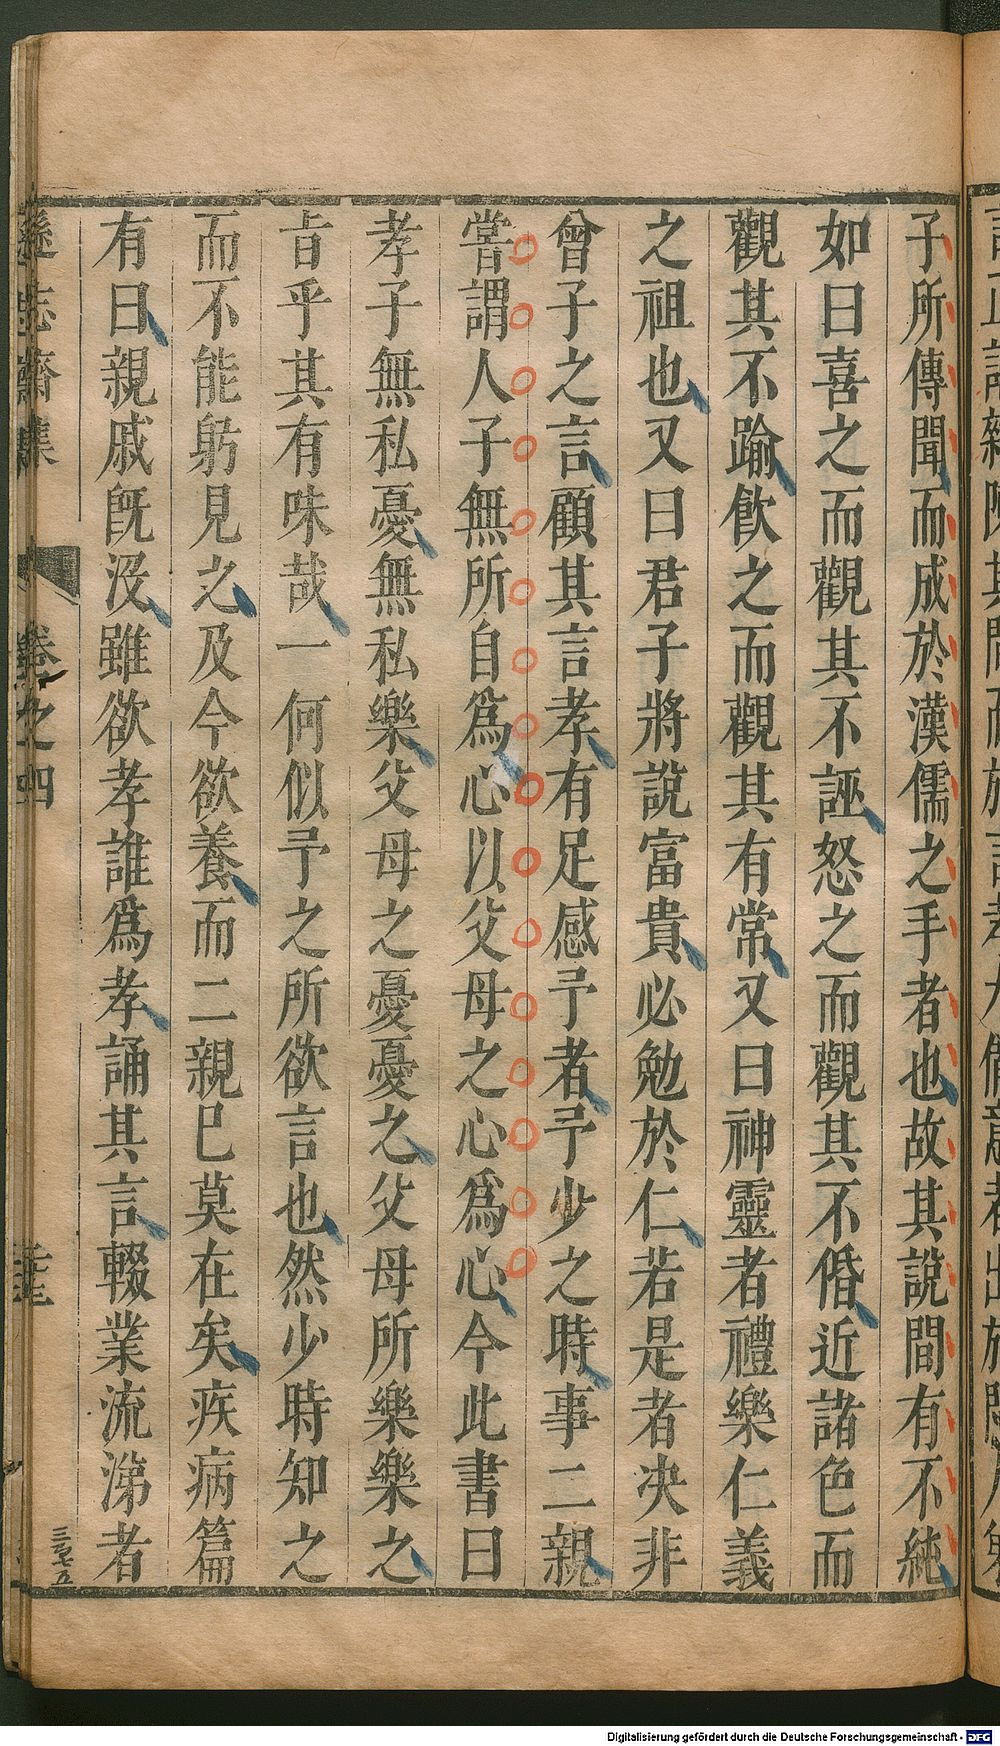 子所傳聞而成於漢儒之手者也故其說間有不純
如曰喜之而觀其不誣怒之而觀其不惛近諸色而
觀其不踰飲之而觀其有常又曰神靈者禮樂仁義
之祖也又曰君子將說富貴必勉於仁若是者决非
曾子之言顧其言孝有足感予者予少之時事二親
嘗謂人子無所自爲心以父母之心爲心今此書曰
孝子無私憂無私樂父母之憂憂之父母所樂樂之
旨乎其有味哉一何似予之所欲言也然少時知之
而不能躬見之及今欲養而二親已莫在矣疾病篇
有曰親戚旣沒雖欲孝誰爲孝誦其言輟業流涕者
遜志齋集
卷之四
Digitalisierung gefördert durch die Deutsche Forschungsgemeinschaft - DFG